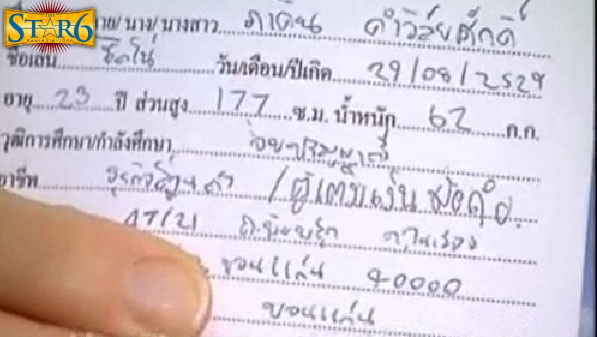 THE STAR6
นาย/ นาง/ นางสาว ภาคิน คำวิลัยศักดิ์
ชื่อเล่น โตโน่ วัน/เดือน/ปีเกิด 29/08/2529
อายุ 23 ปี ส่วนสูง 177 ซ.ม. น้ำหนัก 62 ก.ก.
วุฒิการศึกษา/กำลังศึกษา
อาชีพ ธุรกิจส่วนตัว /ตู้เติมเงิน มือถือ
47/21 ถ. ในเมือง
ขอนแก่น 40000
ขอนแก่น